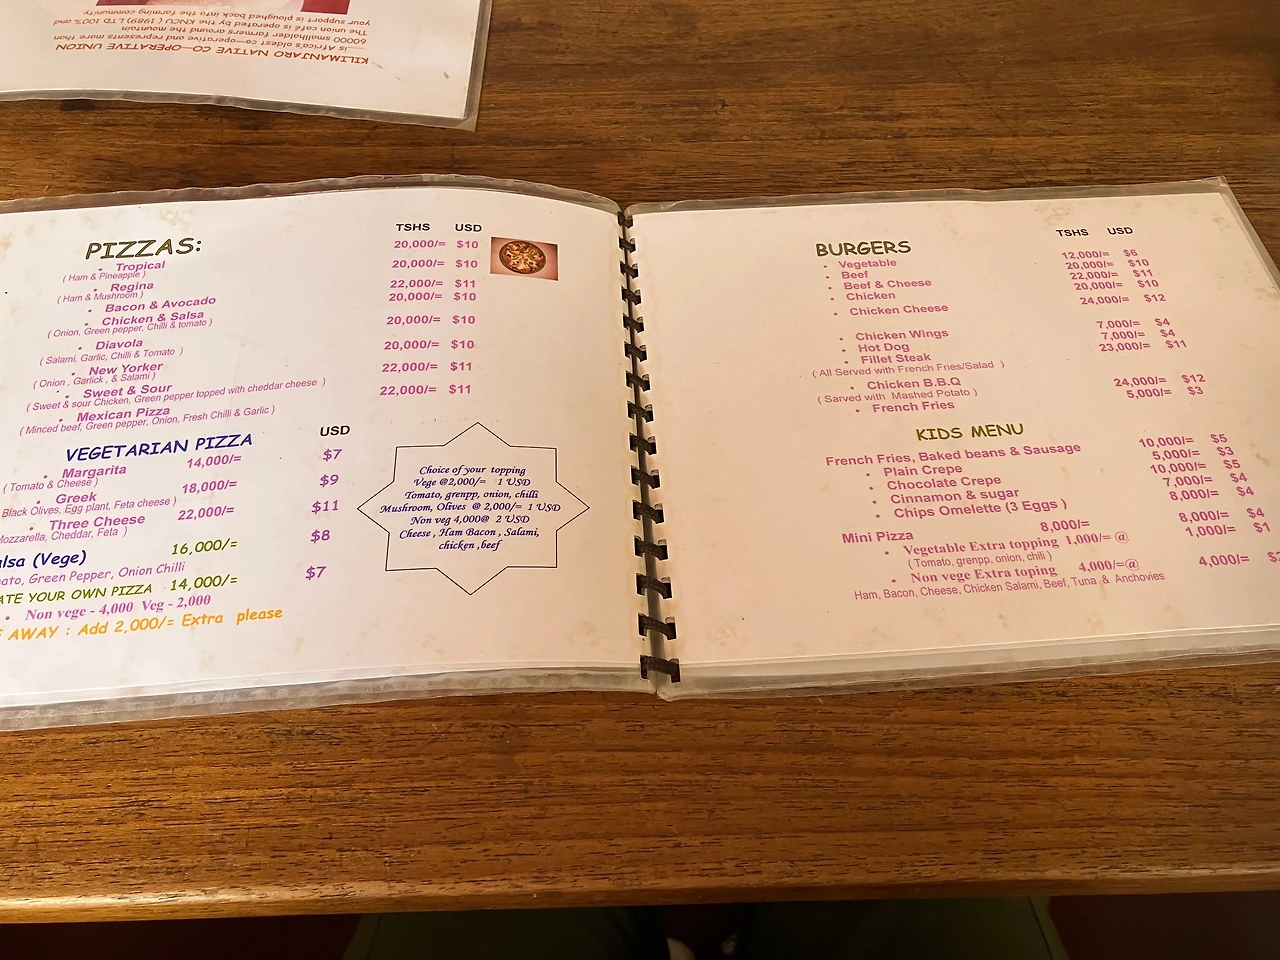 KILIMANJARO NATIVE CO-OPERATIVE UNION
......is Africa's oldest co-operative and represents more than
60000 smallholder farmers around the mountain
The union café is operated by the KNCU ( 1989) LTD and 100%
your support is ploughed back into the farming community.
TSHS USD
PIZZAS:
• Tropical 20,000/= $10
( Ham & Pineapple )
• Regina 20,000/= $10
( Ham & Mushroom )
• Bacon & Avocado 22,000/= $11
• Chicken & Salsa 20,000/= $10
( Onion, Green pepper, Chilli & tomato )
• Diavola 20,000/= $10
(Salami, Garlic, Chilli & Tomato )
• New Yorker 20,000/= $10
(Onion , Garlick , & Salami )
• Sweet & Sour 22,000/= $11
( Sweet & sour Chicken, Green pepper topped with cheddar cheese )
• Mexican Pizza 22,000/= $11
( Minced beef, Green pepper, Onion, Fresh Chilli & Garlic )
VEGETARIAN PIZZA USD
• Margarita 14,000/= $7
( Tomato & Cheese )
• Greek 18,000/= $9
Black Olives, Egg plant, Feta cheese )
• Three Cheese 22,000/= $11
Mozzarella, Cheddar, Feta )
alsa (Vege) 16,000/= $8
ato, Green Pepper, Onion Chilli
ATE YOUR OWN PIZZA 14,000/= $7
• Non vege - 4,000 Veg - 2,000
E AWAY : Add 2,000/= Extra please
Choice of your topping
Vege @2,000/= 1 USD
Tomato, grenpp, onion, chilli
Mushroom, Olives @ 2,000/= 1 USD
Non veg 4,000@ 2 USD
Cheese , Ham Bacon , Salami,
chicken ,beef
TSHS USD
BURGERS
• Vegetable 12,000/= $6
• Beef 20,000/= $10
• Beef & Cheese 22,000/= $11
• Chicken 20,000/= $10
• Chicken Cheese 24,000/= $12
• Chicken Wings 7,000/= $4
• Hot Dog 7,000/= $4
• Fillet Steak 23,000/= $11
( All Served with French Fries/Salad )
• Chicken B.B.Q 24,000/= $12
( Served with Mashed Potato )
• French Fries 5,000/= $3
KIDS MENU
French Fries, Baked beans & Sausage 10,000/= $5
• Plain Crepe 5,000/= $3
• Chocolate Crepe 10,000/= $5
• Cinnamon & sugar 7,000/= $4
• Chips Omelette (3 Eggs ) 8,000/= $4
Mini Pizza 8,000/= 8,000/= $4
• Vegetable Extra topping 1,000/= @ 1,000/= $1
( Tomato, grenpp, onion, chili )
• Non vege Extra toping 4,000/=@ 4,000/=
Ham, Bacon, Cheese, Chicken Salami, Beef, Tuna & Anchovies